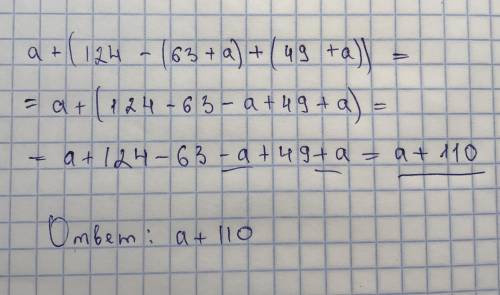 a + (124 - (63 + a) + (49 + a)) =
= a + (124 - 63 - a + 49 + a) =
= a + 124 - 63 - a + 49 + a = a + 110
Ответ: a + 110